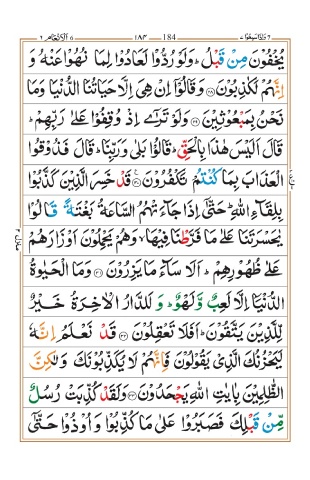 واذا سمعوا ۷ 184 ۱۸۴ الانعام ۶
يُخْفُوْنَ مِنْ قَبْلُ ؕ وَلَوْ رُدُّوْا لَعَادُوْا لِمَا نُهُوْا عَنْهُ وَ
اِنَّهُمْ لَكٰذِبُوْنَ ﴿۲۸﴾ وَقَالُوْۤا اِنْ هِيَ اِلَّا حَيَاتُنَا الدُّنْيَا وَمَا
نَحْنُ بِمَبْعُوْثِيْنَ ﴿۲۹﴾ وَلَوْ تَرٰۤى اِذْ وُقِفُوْا عَلٰى رَبِّهِمْ ؕ
قَالَ اَلَيْسَ هٰذَا بِالْحَقِّ ؕ قَالُوْا بَلٰى وَرَبِّنَا ؕ قَالَ فَذُوْقُوا
الْعَذَابَ بِمَا كُنْتُمْ تَكْفُرُوْنَ ﴿۳۰﴾ قَدْ خَسِرَ الَّذِيْنَ كَذَّبُوْا
بِلِقَآءِ اللّٰهِ ؕ حَتّٰۤى اِذَا جَآءَتْهُمُ السَّاعَةُ بَغْتَةً قَالُوْا
يٰحَسْرَتَنَا عَلٰى مَا فَرَّطْنَا فِيْهَا ۙ وَهُمْ يَحْمِلُوْنَ اَوْزَارَهُمْ
عَلٰى ظُهُوْرِهِمْ ؕ اَلَا سَآءَ مَا يَزِرُوْنَ ﴿۳۱﴾ وَمَا الْحَيٰوةُ
الدُّنْيَاۤ اِلَّا لَعِبٌ وَّلَهْوٌ ؕ وَلَلدَّارُ الْاٰخِرَةُ خَيْرٌ
لِّلَّذِيْنَ يَتَّقُوْنَ ؕ اَفَلَا تَعْقِلُوْنَ ﴿۳۲﴾ قَدْ نَعْلَمُ اِنَّهٗ
لَيَحْزُنُكَ الَّذِيْ يَقُوْلُوْنَ فَاِنَّهُمْ لَا يُكَذِّبُوْنَكَ وَلٰكِنَّ
الظّٰلِمِيْنَ بِاٰيٰتِ اللّٰهِ يَجْحَدُوْنَ ﴿۳۳﴾ وَلَقَدْ كُذِّبَتْ رُسُلٌ
مِّنْ قَبْلِكَ فَصَبَرُوْا عَلٰى مَا كُذِّبُوْا وَاُوْذُوْا حَتّٰۤى